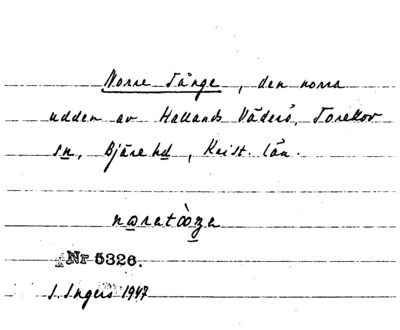 Norre Tånge, den norra
udden av Hallands Väderö, Torekov
sn, Bjäre hd, Krist. län.
Nr 5326.
I. Ingers 1947